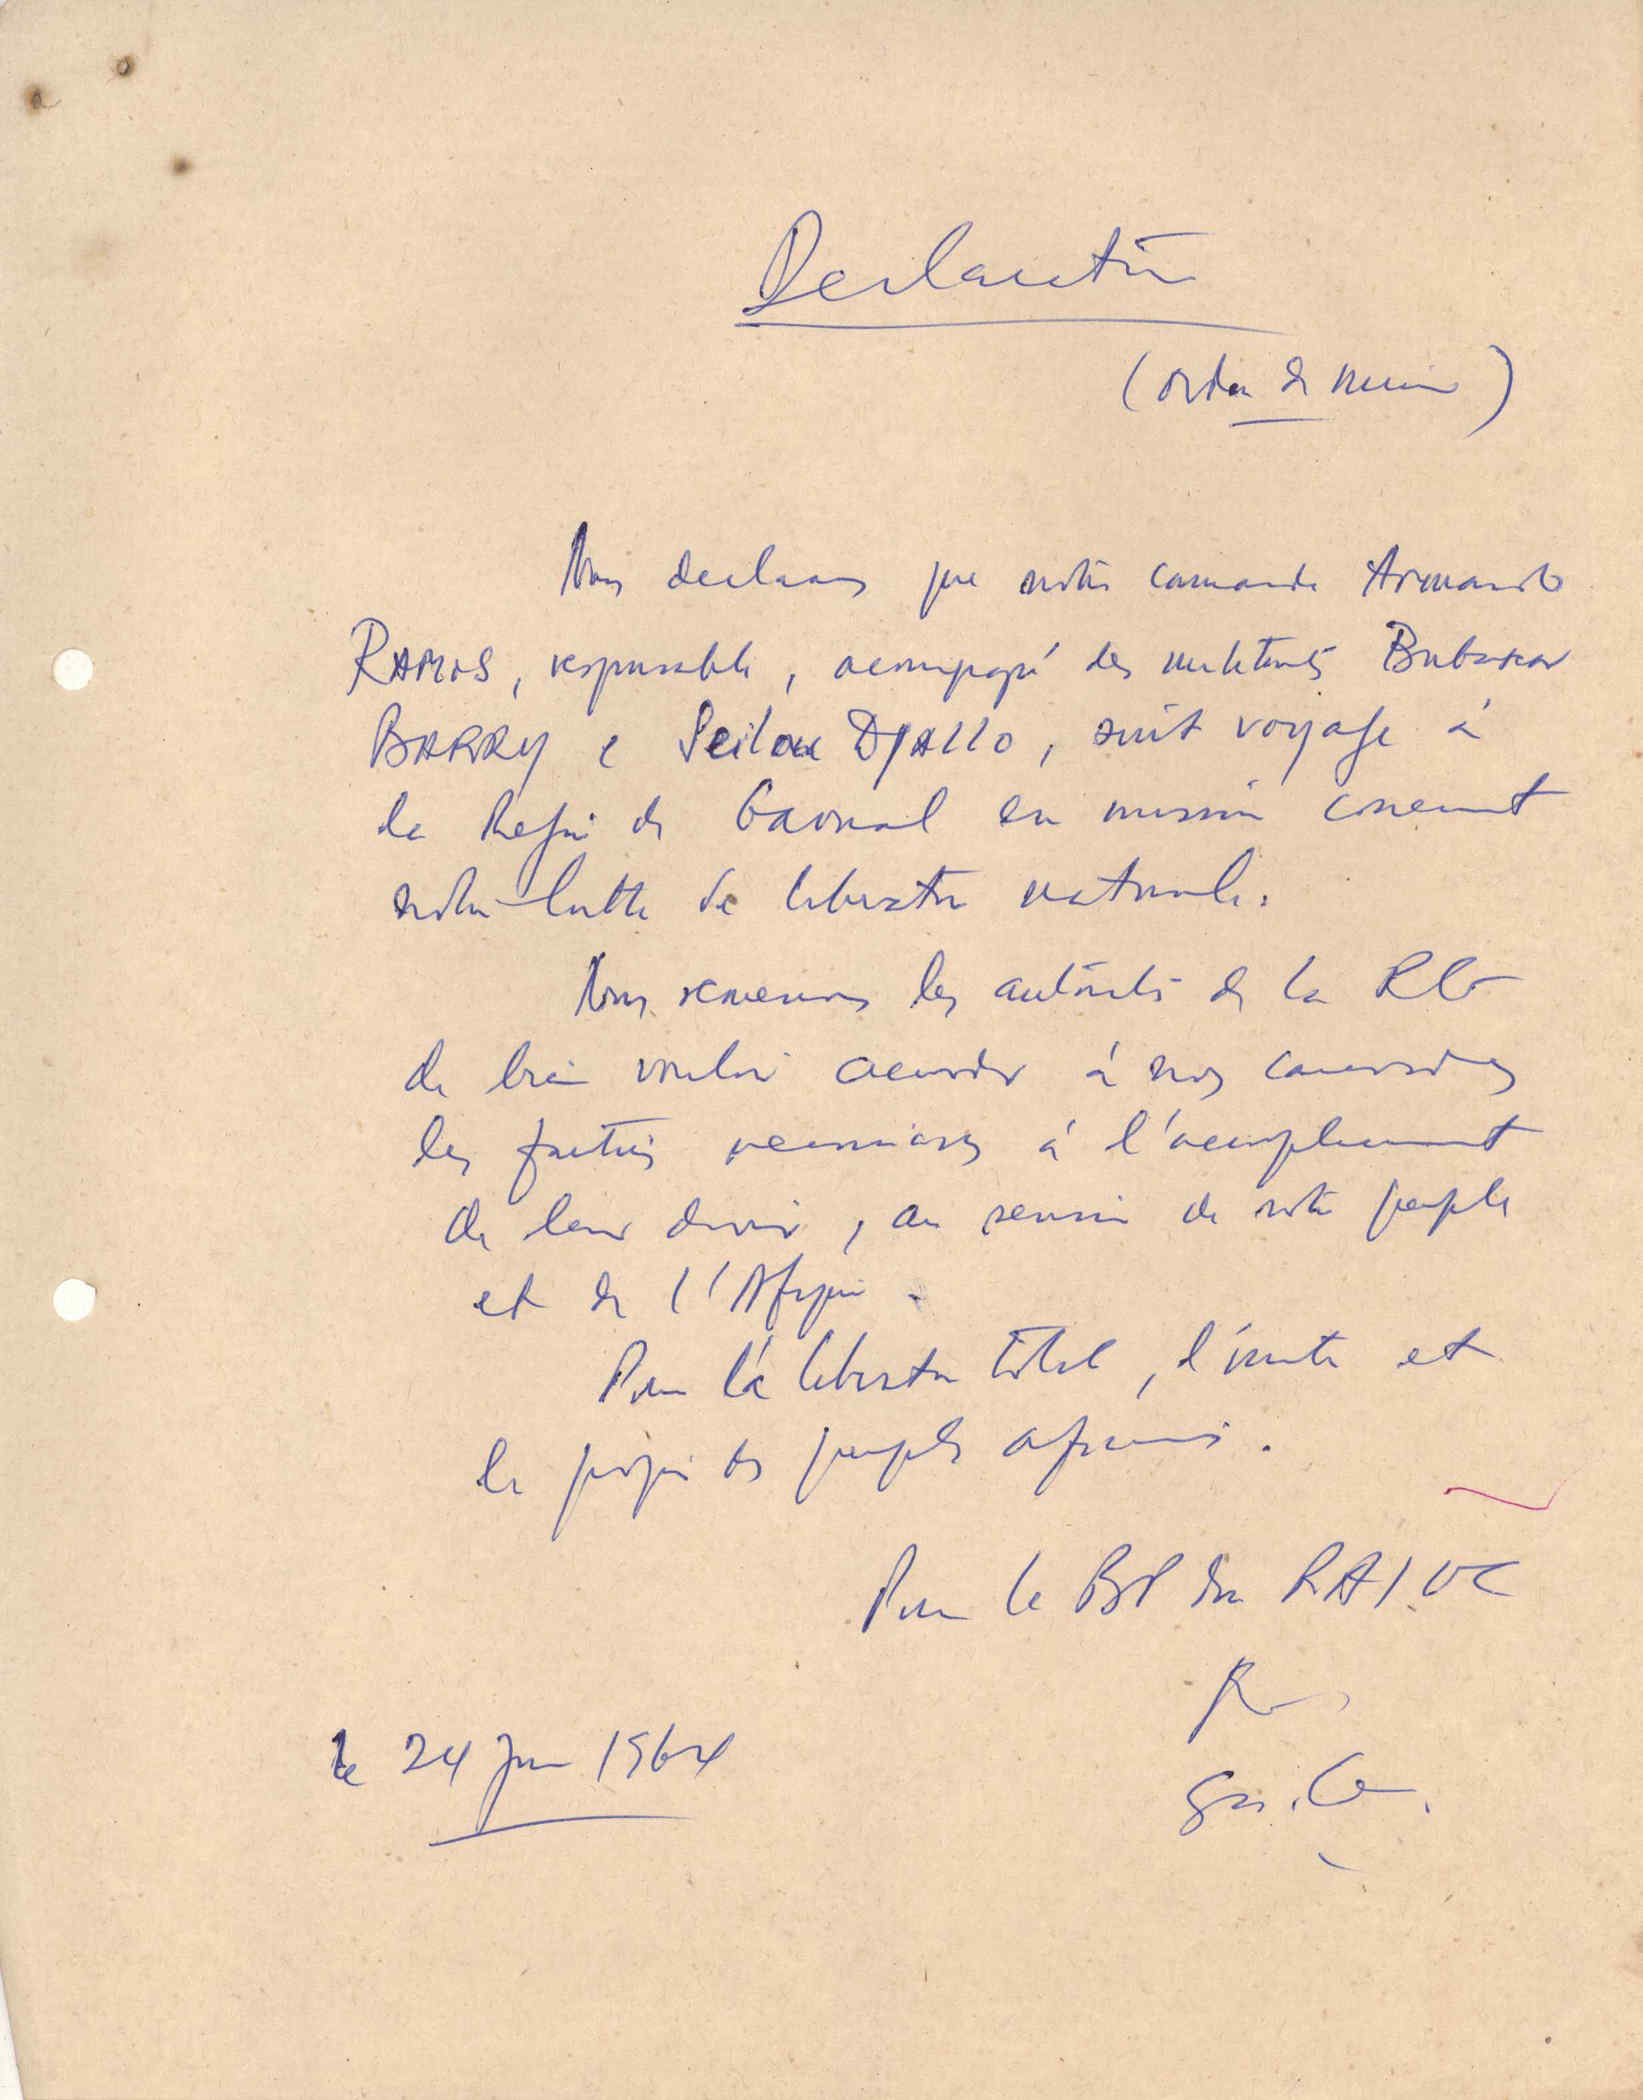 Déclaration
(ordre de mission)
Nous déclarons que notre camarade Armando
RAMOS, responsable, acompagné des militants Bubakar
BARRY e Seilou DJALLO, suit voyage à
la Région de Gaoual en mission concernant
notre lutte de libération nationale.
Nous remercions les autorités de la RG
de bien vouloir accorder à nos camarades
les facilités nécessaires à l'acomplissement
de leur devoir, au service de notre peuple
et de l'Afrique.
Pour la libération totale, l'unité et
le progrès des peuples africains.
Pour le BP du PAIGC
Sec. Gen.
le 24 Juin 1964